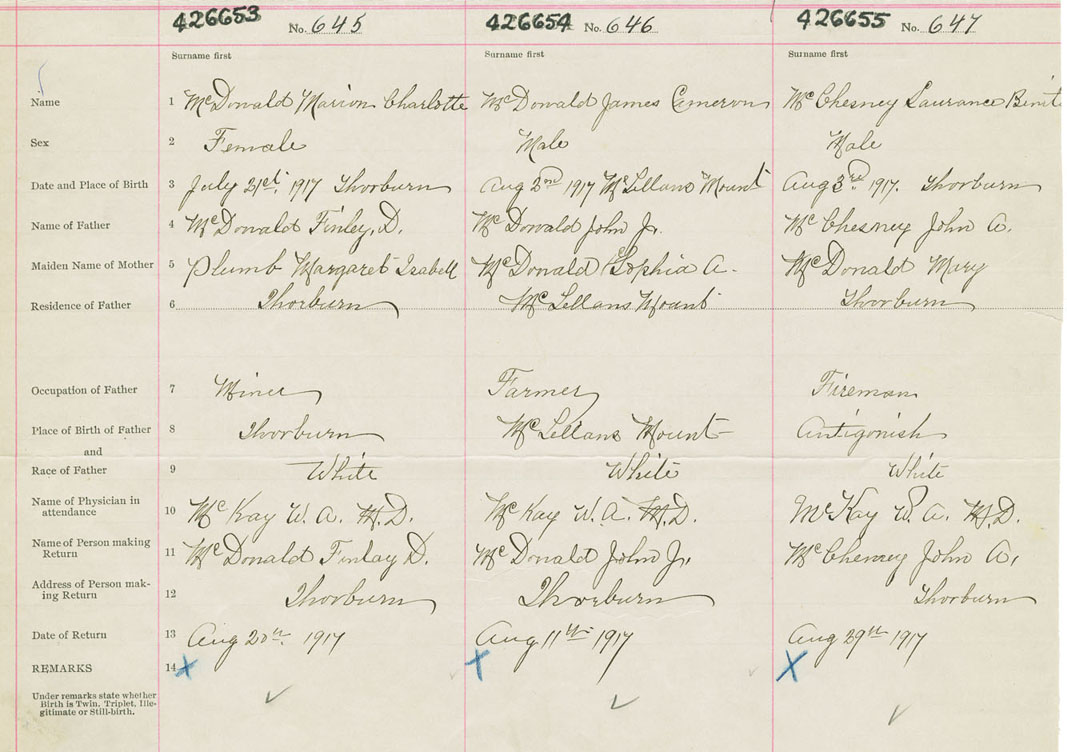 426653 No. 645 426654 No. 646 426655 No. 647
Surname first Surname first Surname first
Name 1 McDonald Marion Charlotte McDonald James Cameron McChesney Laurance
Sex 2 Female Male Male
Date and Place of Birth 3 July 21st, 1917 Thorburn Aug 2nd 1917 McLellans Mount Aug 3rd 1917. Thorburn
Name of Father 4 McDonald Finley, D. McDonald John Jr. McChesney John A.
Maiden Name of Mother 5 Plumb Margaret Isabell McDonald Sophia A. McDonald Mary
Residence of Father 6 Thorburn McLellans Mount Thorburn
Occupation of Father 7 Miner Farmer Fireman
Place of Birth of Father 8 Thorburn McLellans Mount Antigonish
and
Race of Father 9 White White White
Name of Physician in
attendance 10 McKay W. A. M.D. McKay W. A. M.D. McKay W. A. M.D.
Name of Person making
Return 11 McDonald Finlay D. McDonald John Jr. McChesney John A.
Address of Person mak-
ing Return 12 Thorburn Thorburn Thorburn
Date of Return 13 Aug 20th. 1917 Aug 11th 1917 Aug 29th 1917
REMARKS 14 X X X
Under remarks state whether
Birth is Twin, Triplet, Ille-
gitimate or Still-birth.